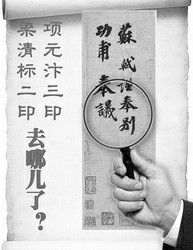 蘇軾謹奉別
功甫奉議
项元汴三印
梁清标二印
去哪儿了？